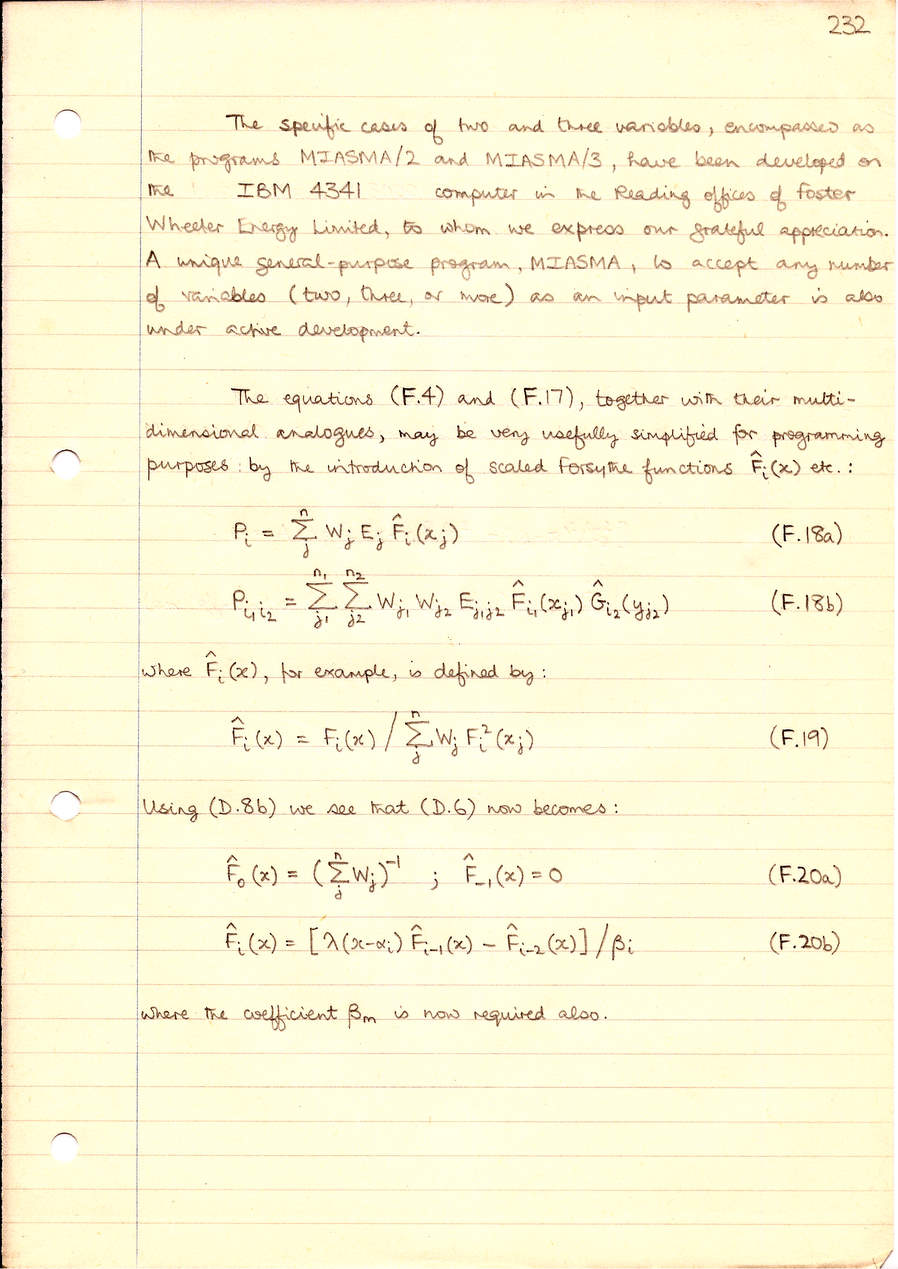 232
The specific cases of two and three variables, encompassed as
the programs MIASMA/2 and MIASMA/3, have been developed on
the IBM 4341 computer in the Reading offices of Foster
Wheeler Energy Limited, to whom we express our grateful appreciation.
A unique general-purpose program, MIASMA, to accept any number
of variables (two, three, or more) as an input parameter is also
under active development.
The equations (F.4) and (F.17), together with their multi-
dimensional analogues, may be very usefully simplified for programming
purposes: by the introduction of scaled Forsythe functions F̂ᵢ(x) etc.:
Pᵢ = Σⱼⁿ Wⱼ Eⱼ F̂ᵢ(xⱼ) (F.18a)
P_{i₁i₂} = Σ_{j₁}^{n₁} Σ_{j₂}^{n₂} W_{j₁} W_{j₂} E_{j₁j₂} F̂_{i₁}(x_{j₁}) Ĝ_{i₂}(y_{j₂}) (F.18b)
where F̂ᵢ(x), for example, is defined by:
F̂ᵢ(x) = Fᵢ(x) / Σⱼⁿ Wⱼ Fᵢ²(xⱼ) (F.19)
Using (D.8b) we see that (D.6) now becomes:
F̂₀(x) = (Σⱼⁿ Wⱼ)⁻¹ ; F̂₋₁(x) = 0 (F.20a)
F̂ᵢ(x) = [λ(x-αᵢ) F̂ᵢ₋₁(x) - F̂ᵢ₋₂(x)] / βᵢ (F.20b)
where the coefficient βₘ is now required also.